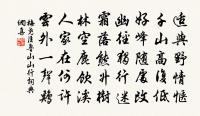 適與野情愜
千山高復低
好峰隨處改
幽徑獨行迷
霜落熊升樹
林空鹿飲溪
人家在何許
雲外一聲鷄
梅堯臣魯山山行詞典
網